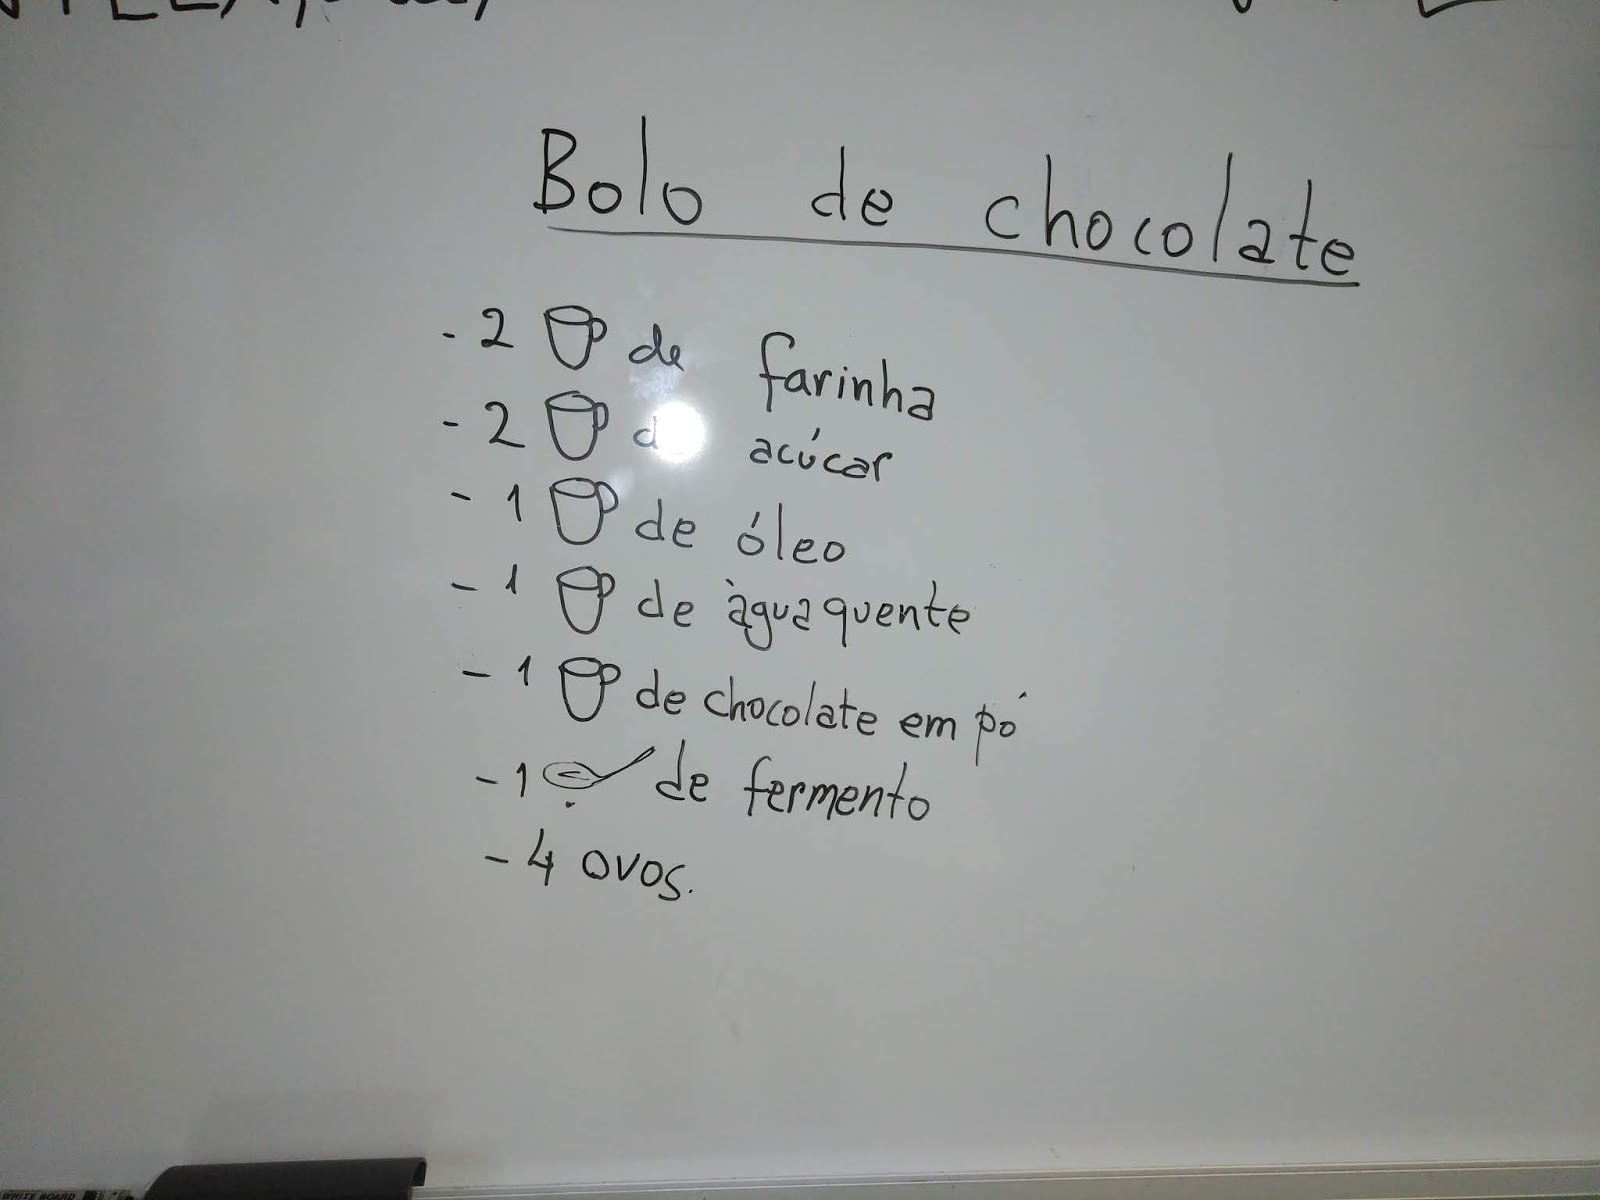 Bolo de chocolate
- 2 de farinha
- 2 d acúcar
- 1 de óleo
- 1 de àgua quente
- 1 de chocolate em pó
- 1 de fermento
- 4 ovos.
WHITE BOARD